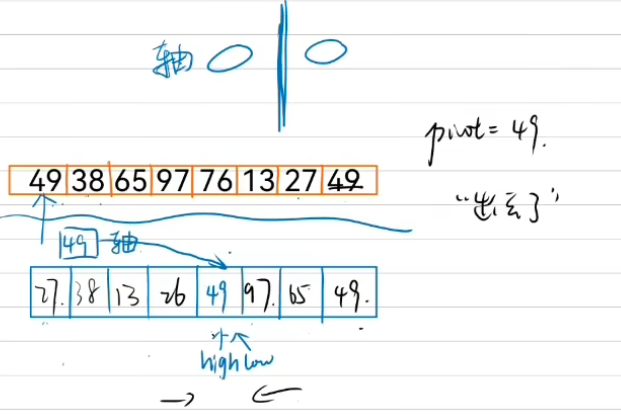 轴
pivot = 49.
49 38 65 97 76 13 27 49
“出去了”
49 轴
27. 38 13 26 49 97. 65 49.
high low